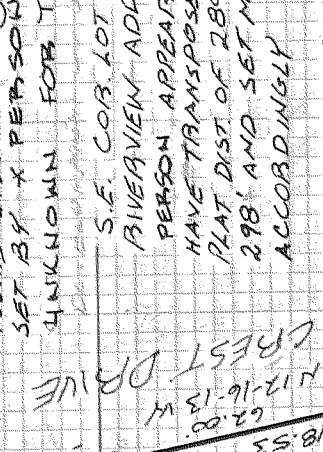 SET BY X PERSON
UNKNOWN FOR
S.E. COR. LOT
RIVERVIEW ADD
PERSON APPEAR
HAVE TRANSPOSE
PLAT DIST. OF 28
298' AND SET M
ACCORDINGLY
CREST DRIVE
N 12-16-13 W
62.00'
18.53